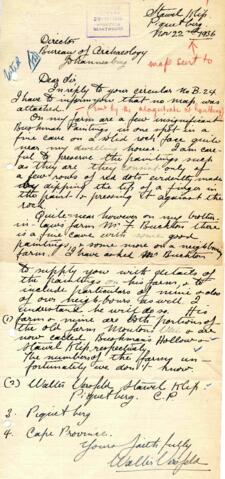 Stawel Klip
Piquetberg.
Nov 22nd 1936
map sent to
Director
Bureau of Archaeology
Johannesburg
Dear Sir
In reply to your circular No B.24
I have to inform you that no map was
attached.
On my farm are a few insignificant
Bushman Paintings in one spot in a
cave on a solid rock face quite
near my dwelling house. I am care-
ful to preserve the paintings such
as they are they consist only of a
few rows of red dots evidently made
by dipping the tip of a finger in
the paint & pressing it against the
rock.
Quite near however on my brother-
in-laws farm Mr F Buckton there
is a fine cave with some good
paintings & some more on a neighbouring
farm. I have asked Mr Buckton
to supply you with details of
the paintings on his farm & to
include particulars of mine & also
of our neighbours as well I
understand he will do so. His
farm & mine are both portions of
the old farm Mouton & are
now called Bushman's Hollow &
Stawel Klip respectively.
The numbers of the farms un-
fortunately we don't know.
(2) Walter Stawel Klip
Piquetberg. C.P
3. Piquetberg
4. Cape Province.
Yours faithfully
Walter